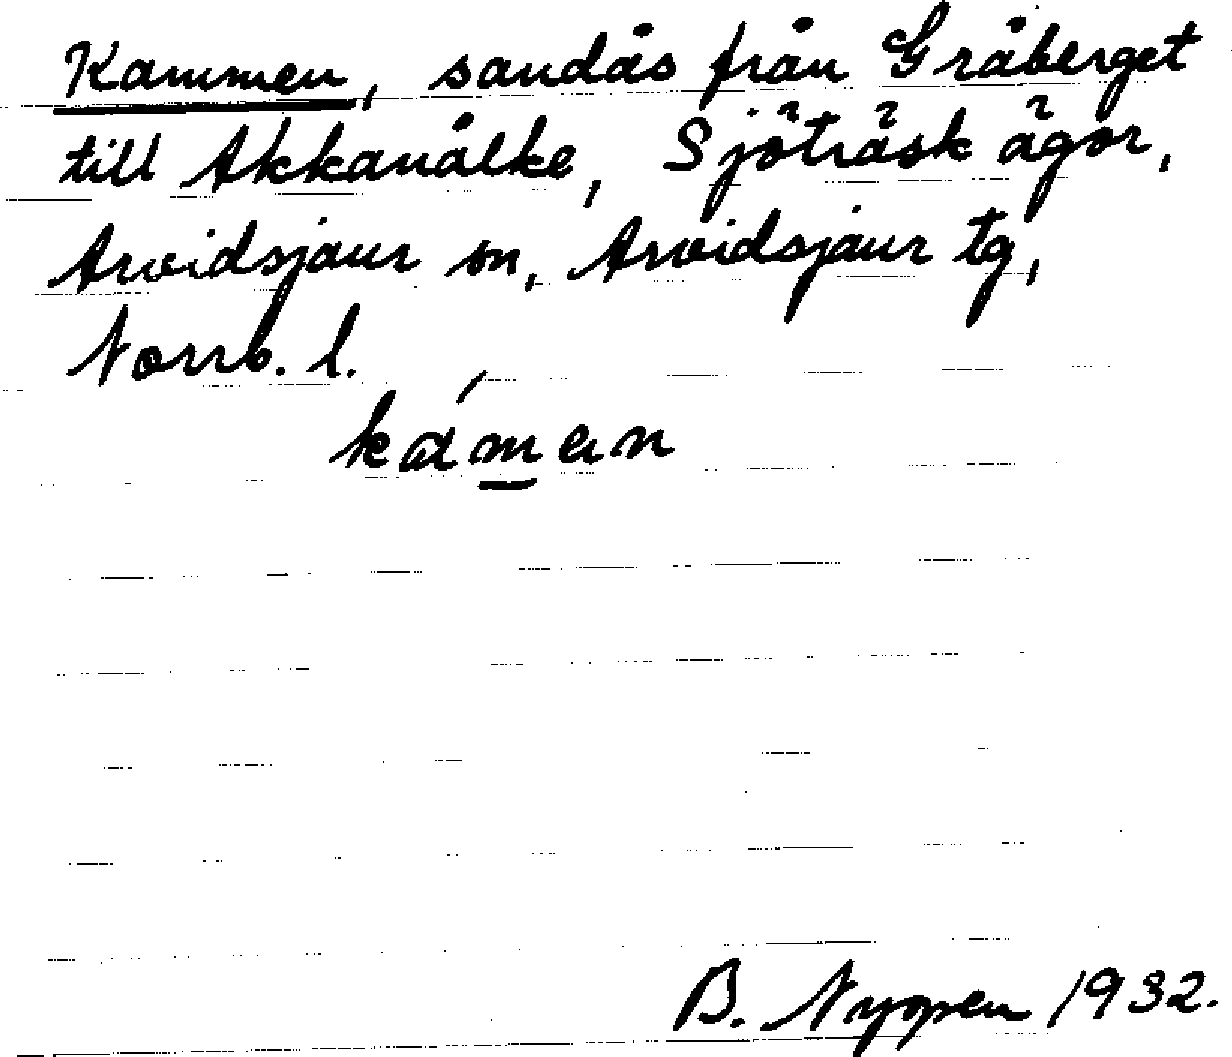 Kammen, sandås från Gråberget
till Akkanålke, Sjöträsk ägor,
Arvidsjaur sn, Arvidsjaur tg,
Norrb. l.
káman
B. Nyopen 1932.